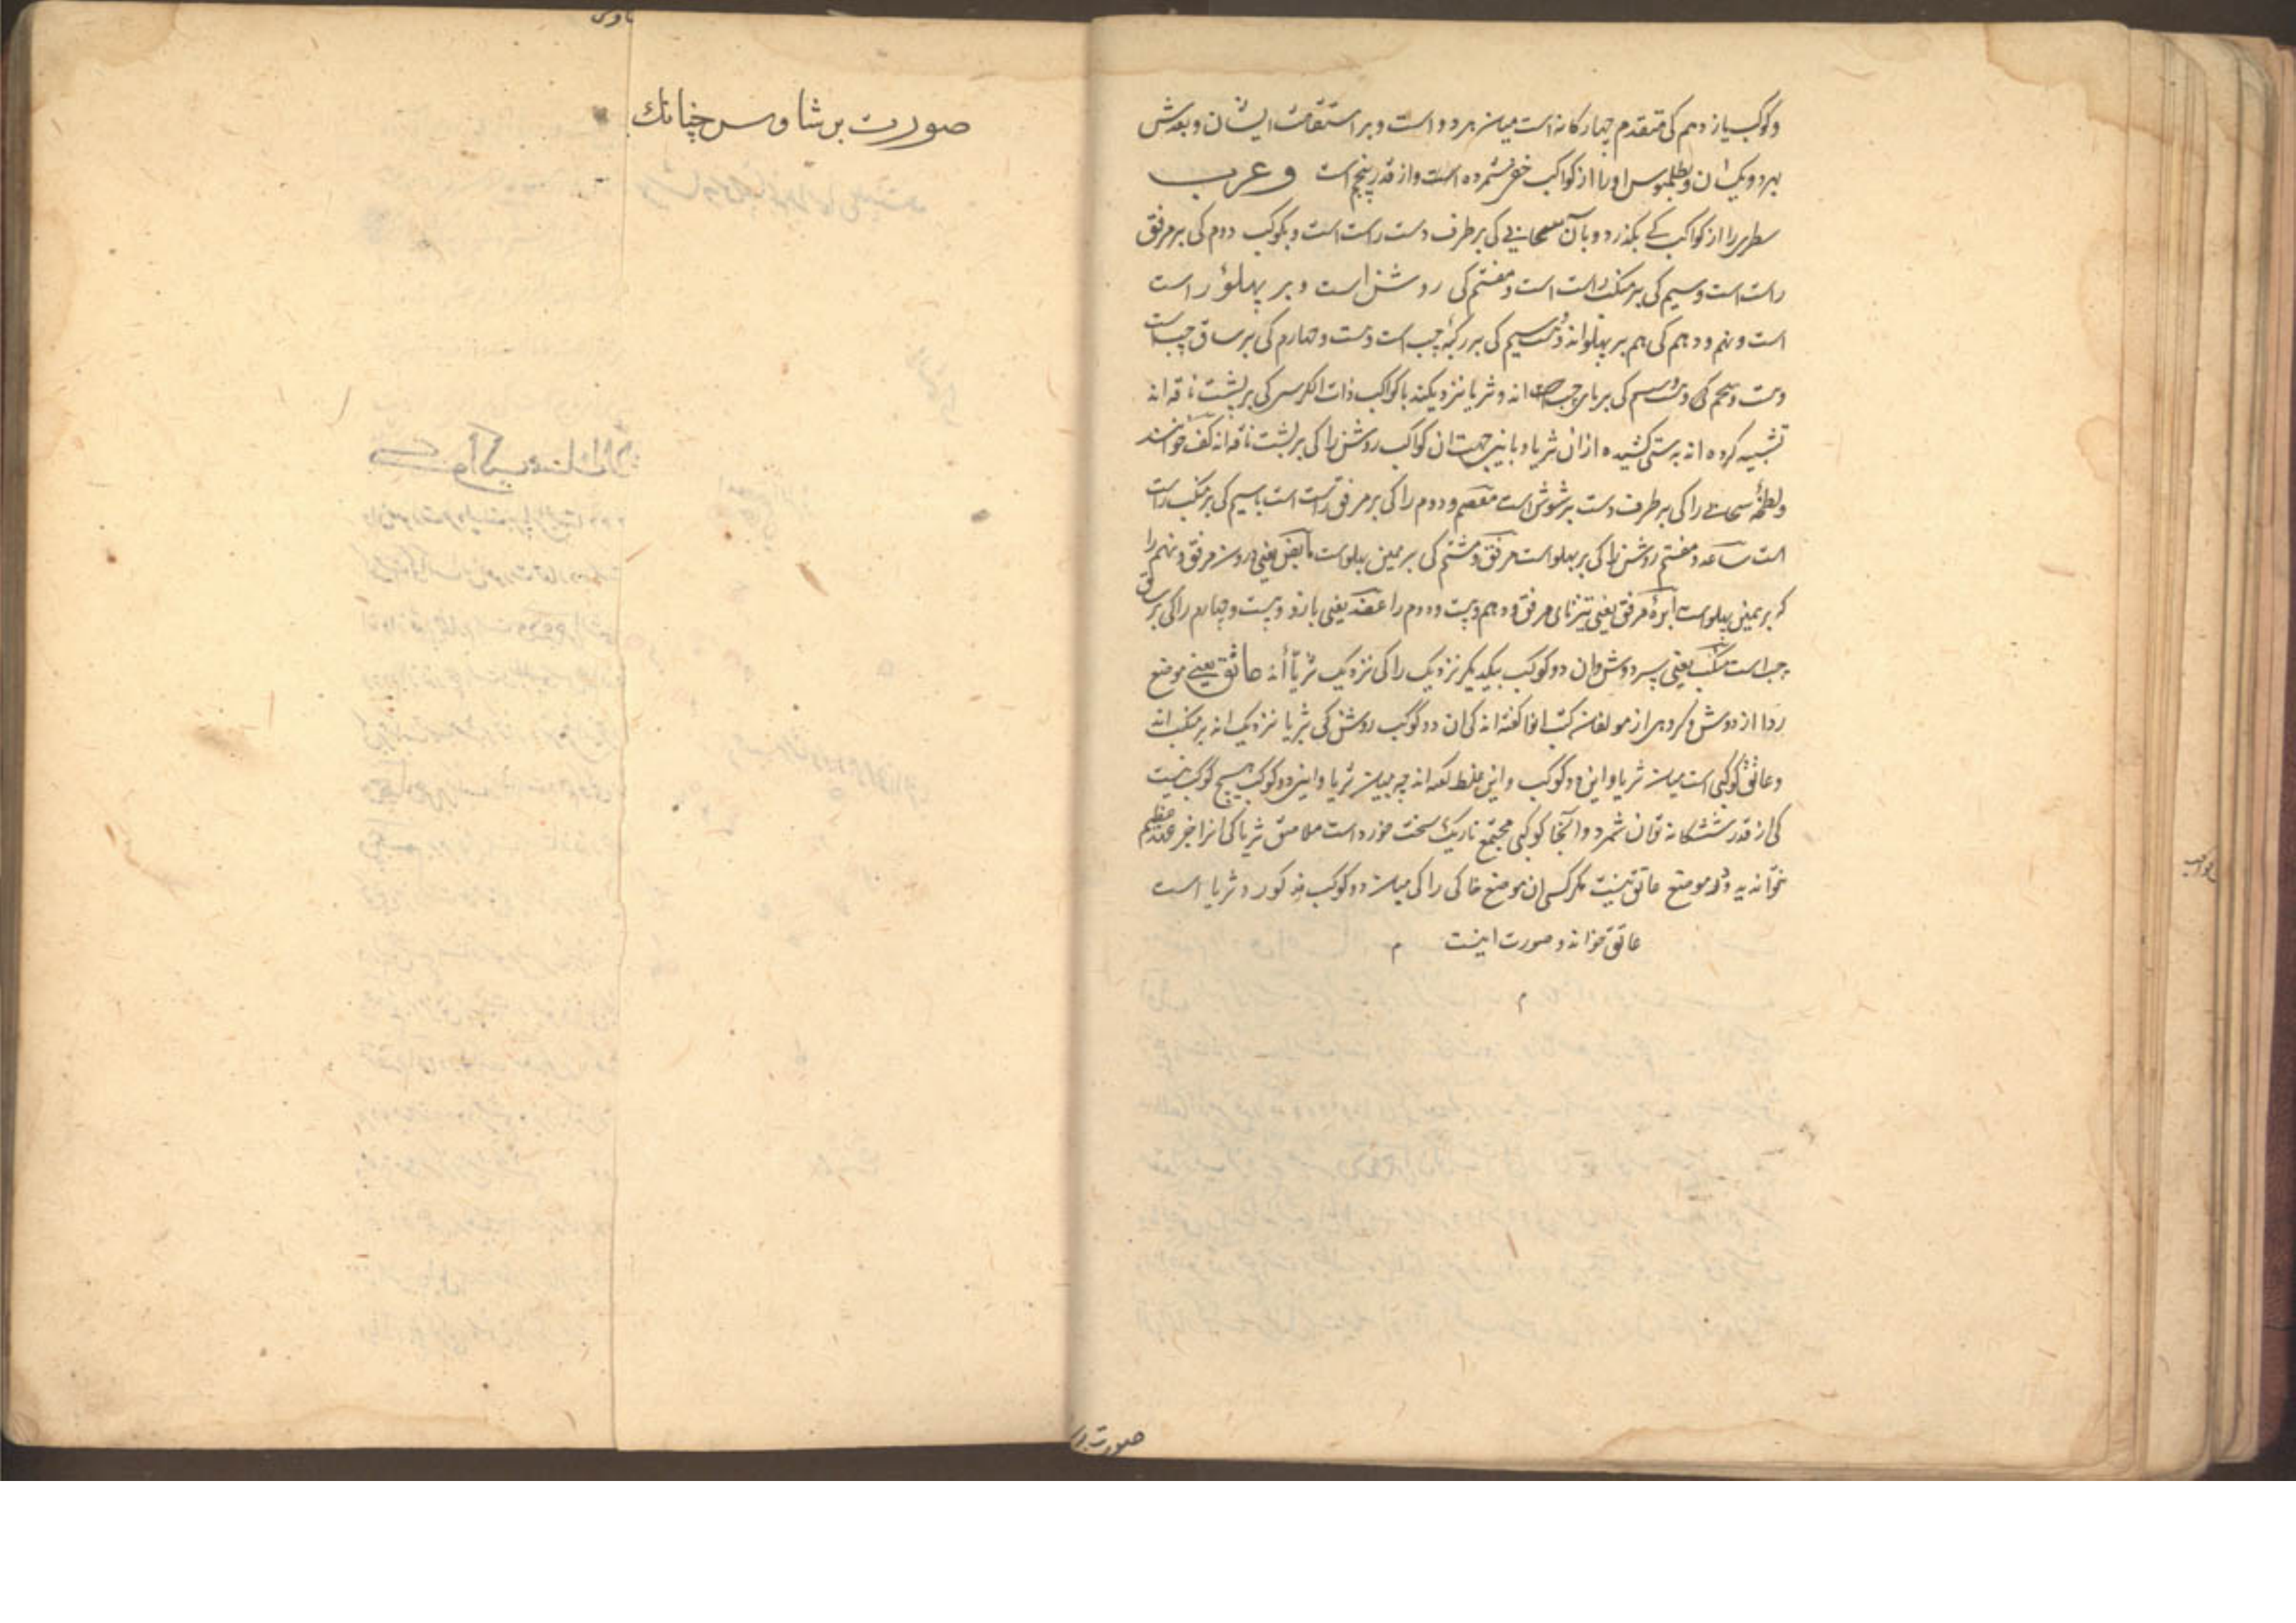 وکوکب یازدهم کی متقدم چهارکانه است میان هر دو است و بر استقامت ایشان و بعدش
بهر دو یکسان و بطلمیوس اورا از کواکب خفی شمرده است و از قدر پنجم است و عرب
سطری را از کواکب کی بکذرد و بآن سحابی کی بر طرف دست راست است و بکوکب دوم کی بر مرفق
راست است و سیم کی بر منکب راست است و هفتم کی روشن است و بر پهلوء راست
است و نهم و دهم کی هم بر پهلواند و بیست و سیم کی بر رکبهٔ چپ است و بیست و چهارم کی بر ساق چپ است
کی بر پای چپ اند و ثریا نزدیکند با کواکب ذات الکرسی کی بر پشت ناقه اند
تشبیه کرده اند بدستی کشیده از ان ثریا و باین جهت ان کواکب روشن را کی بر پشت ناقه اند کف خوانند
ولطخهٔ سحابی را کی بر طرف دست برشوش است معصم و دوم را کی بر مرفق راست است با سیم کی بر منکب راست
است ساعد و هفتم روشن را کی بر پهلو است مرفق و هشتم کی بر همین پهلوست مأبض یعنی درون مرفق و نهم را
که بر همین پهلواست ابرهٔ مرفق یعنی تیزنای مرفق و دهم و بیست و دوم را عضد یعنی بازو و بیست و چهارم را کی بر ساق
چپ است منکب یعنی سر دوش و ان دو کوکب بیکدیکر نزدیک را کی نزدیک ثریّا اند عاتق یعنی موضع
ردا از دوش و کروهی از مولفان کتب انوا کفته اند کی ان دو کوکب روشن کی بثریا نزدیک اند بر منکب اند
و عاتق کوکبی است میان ثریا و این دو کوکب و این غلط کفته اند چه میان ثریا و این دو کوکب هیچ کوکب نیست
کی از قدر ششکانه توان شمرد و انجا کوکبی مجتمع تاریک سخت خورد است ملاصق ثریا کی انرا
خوانند و در موضع عاتق نیست مکر کسی ان موضع خالی را کی میان دو کوکب مذکور و ثریا است
عاتق خواند و صورت اینست م
م
صورت بر
صورت برشاوس چنانك